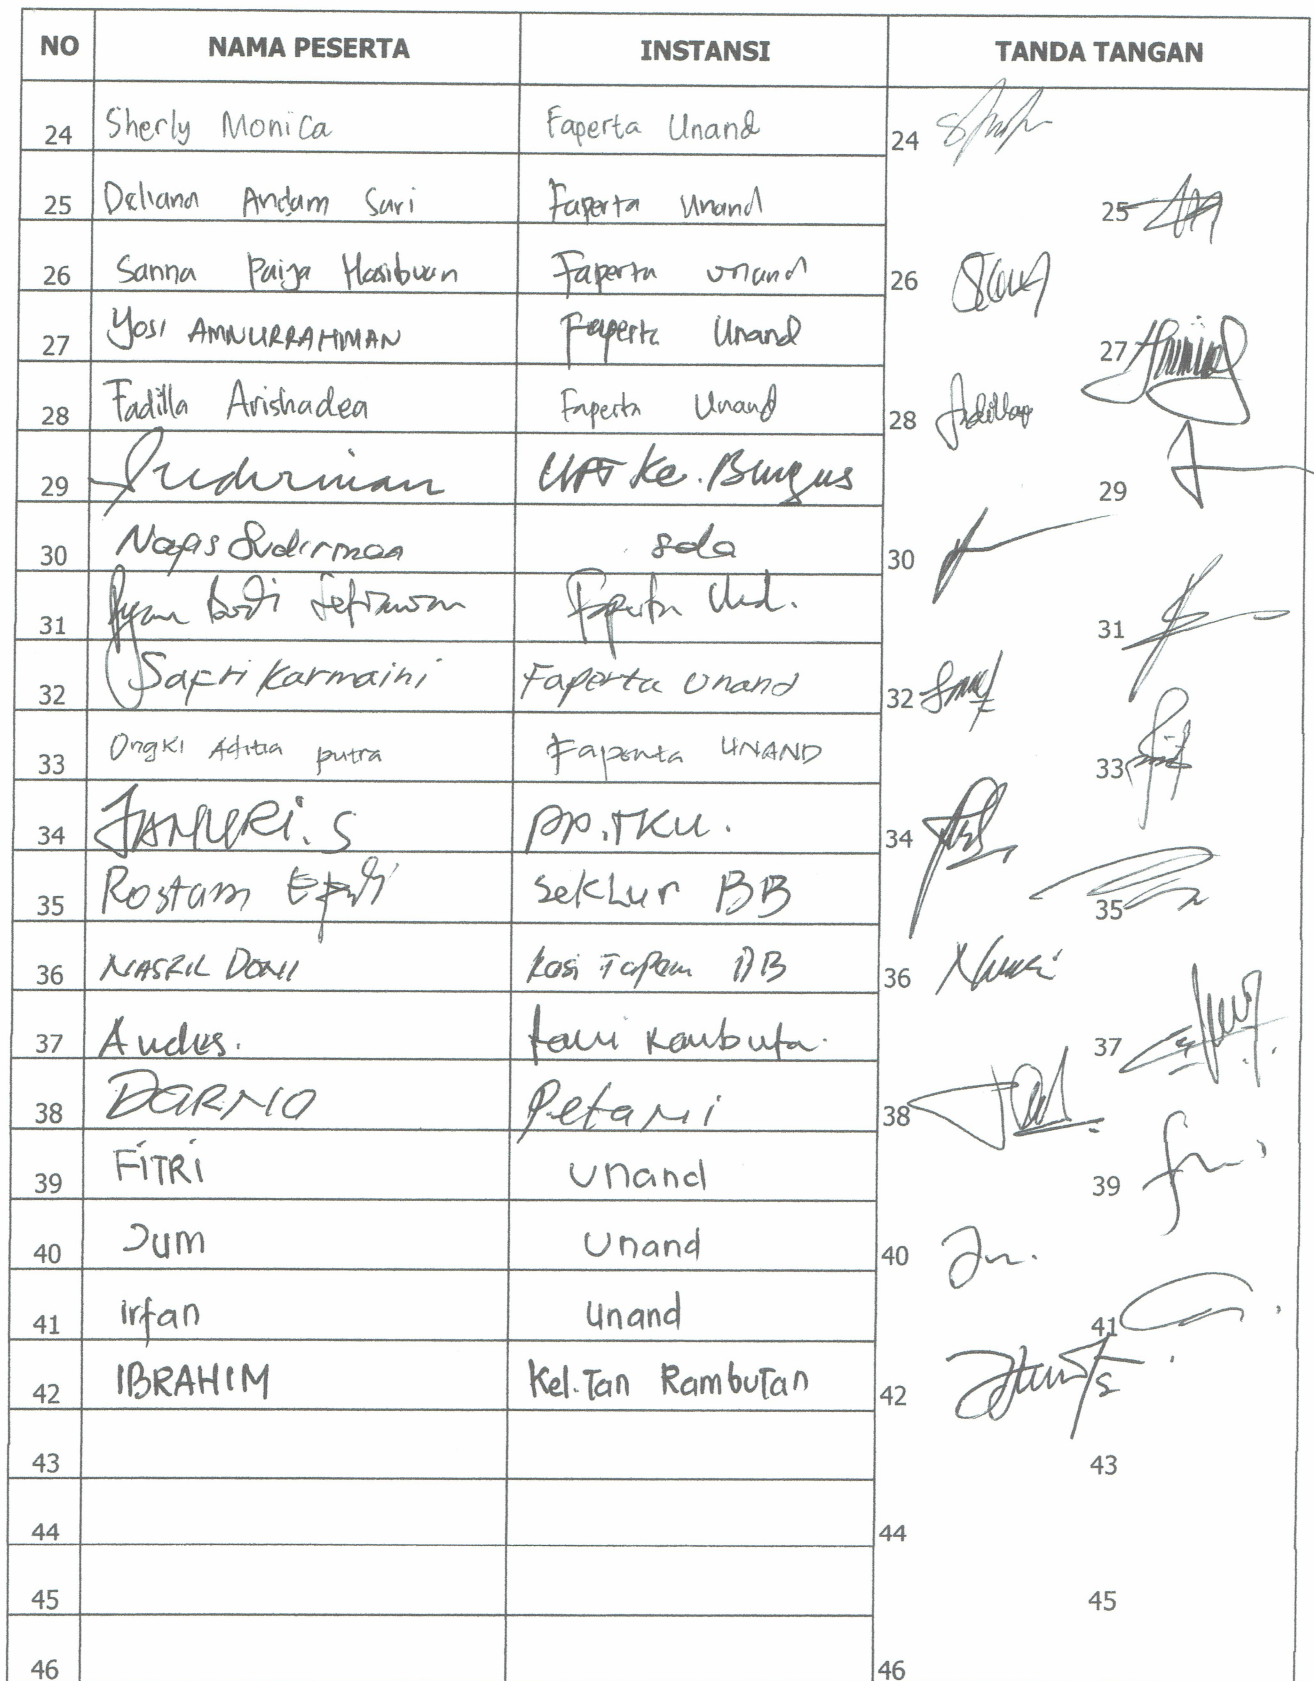 NO NAMA PESERTA INSTANSI TANDA TANGAN
24 Sherly Monica Faperta Unand 24
25 Deliana Andam Sari Faperta Unand 25
26 Sanna Paija Hasibuan Faperta Unand 26
27 Yosi AMNURRAHMAN Faperta Unand 27
28 Fadilla Arishadea Faperta Unand 28
29 Sudirman Ke. Bungus 29
30 Sudirman sda 30
31 Budi Faperta 31
32 Safri Karmaini Faperta Unand 32
33 Ongki Aditia putra Faperta UNAND 33
34 JAMURI. S PP.TKU. 34
35 Rostam Seklur BB 35
36 NASRIL DONI Kasi Tapem BB 36
37 Andus. tani 37
38 DARNO Petani 38
39 FITRI Unand 39
40 Jum Unand 40
41 irfan Unand 41
42 IBRAHIM Kel.Tan Rambutan 42
43 43
44 44
45 45
46 46